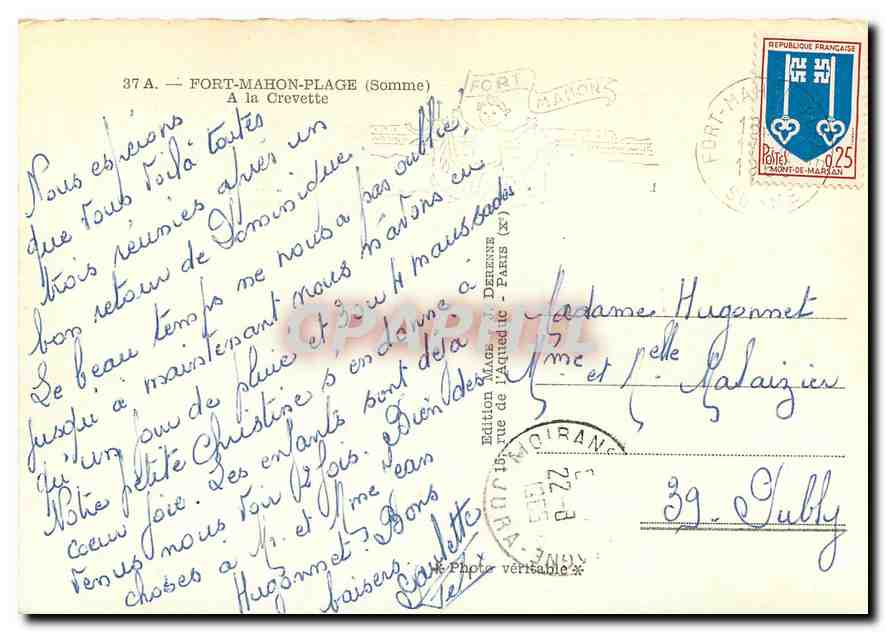 37 A. — FORT-MAHON-PLAGE (Somme)
A la Crevette
Nous espérons
que vous voilà toutes
trois réunies après un
bon retour de Dominique.
Le beau temps ne nous a pas oublié,
jusqu'à maintenant nous n'avons eu
qu'un jour de pluie et 3 ou 4 maussades.
Notre petite Christine s'en donne à
cœur joie. Les enfants sont déjà
venus nous voir 2 fois. Bien des
choses à M. et Mme Jean
Hugonnet. Bons
baisers.
Paulette
Edition MAGE - J. DERENNE
15, rue de l'Aqueduc - PARIS (Xe)
* Photo véritable *
FORT
MAHON
FORT-MAHON
REPUBLIQUE FRANÇAISE
POSTES 0,25
MONT-DE-MARSAN
Madame Hugonnet
Mme et Melle Malaizier
39. Jubly
MOIRANS
22-8
JURA
CPARHIL